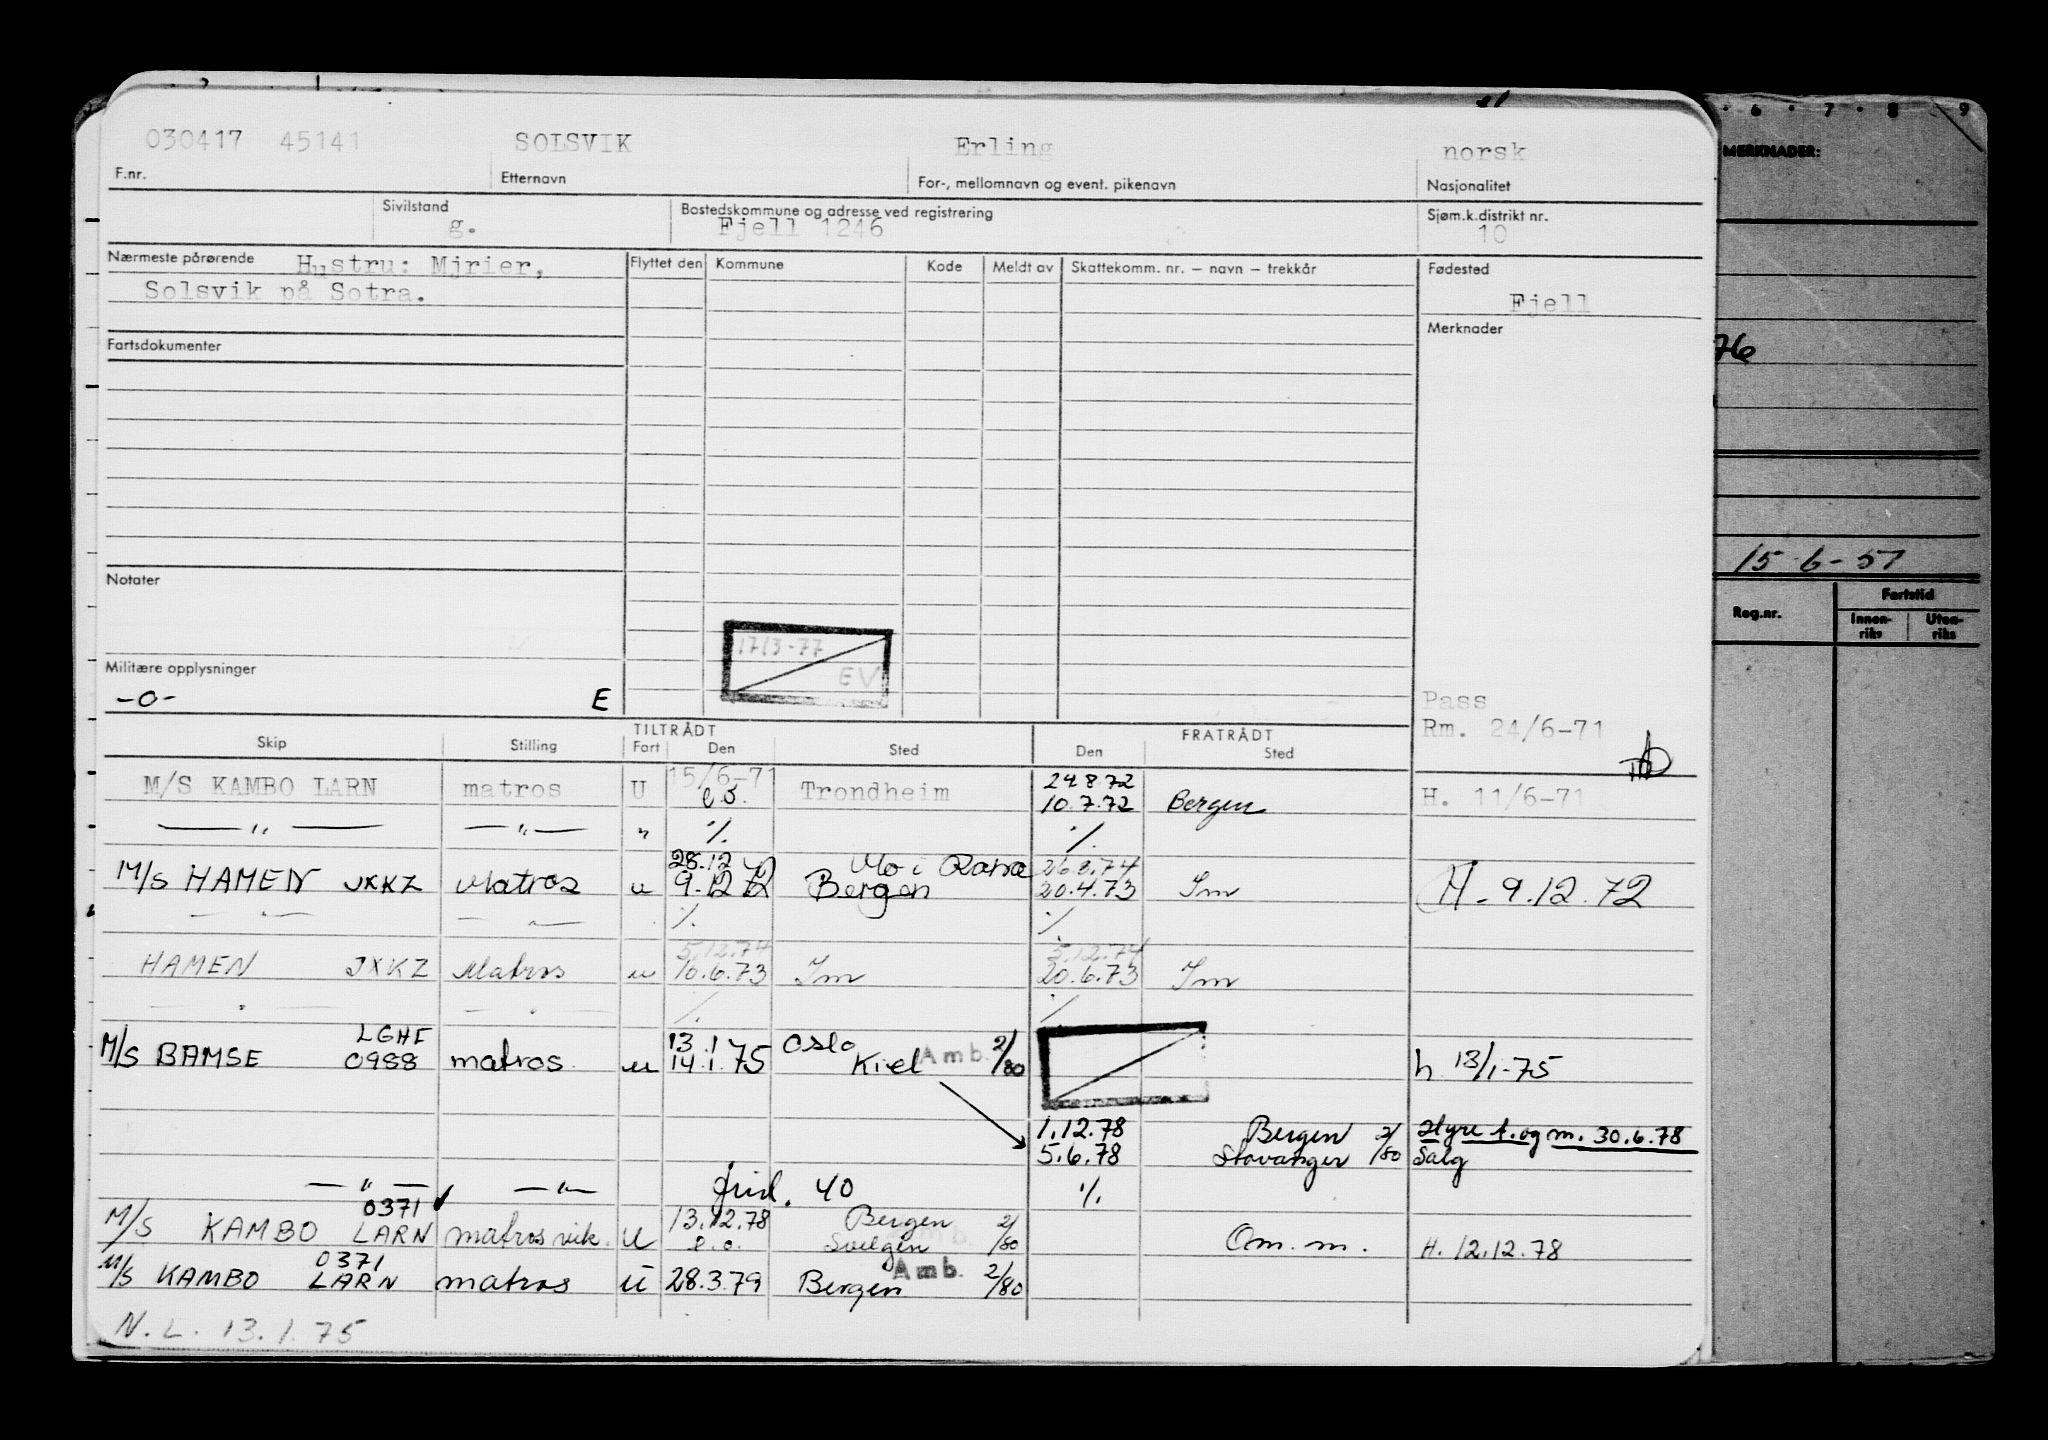 030417 45141 SOLSVIK Erling norsk
F.nr. Etternavn For-, mellomnavn og event. pikenavn Nasjonalitet
Sivilstand Bostedskommune og adresse ved registrering Sjøm.k.distrikt nr.
g. Fjell 1246 10
Nærmeste pårørende Hustru: Mjrier, Flyttet den Kommune Kode Meldt av Skattekomm. nr. – navn – trekkår Fødested
Solsvik på Sotra. Fjell
Merknader
Fartsdokumenter
Notater
17/3-77
EV
Militære opplysninger
-o- E
Pass
Rm. 24/6-71
TILTRÅDT FRATRÅDT
Skip Stilling Fart Den Sted Den Sted
15/6-71 24.8.72
M/S KAMBO LARN matros U e.o. Trondheim 10.7.72 Bergen H. 11/6-71
— " — — " — " ./. ./.
28.12 Mo i Rana 26.8.74
M/S HAMEN JXKZ Matros u 9.12 72 Bergen 20.4.73 Im H. 9.12.72
— " — — " — ./. ./.
5.12.74 5.12.74
HAMEN JXKZ Matros u 10.6.73 Im 20.6.73 Im
— " — — " — ./. ./.
LGHF 13.1 Oslo 2/80
M/S BAMSE 0988 matros u 14.1.75 Kiel Amb. h 13/1-75
1.12.78 Bergen 2/80 styre t.og m. 30.6.78
5.6.78 Stavanger Salg
— " — — " — frid. 40 ./.
0371 13.12.78 Bergen 2/80
M/S KAMBO LARN matros vik. U e.o. Svelgen Om. m. H. 12.12.78
0371 Amb.
M/S KAMBO LARN matros U 28.3.79 Bergen 2/80
N.L. 13.1.75
6 7 8 9
MERKNADER:
76
15-6-57
Reg.nr. Fartstid
Innen-riks Uten-riks